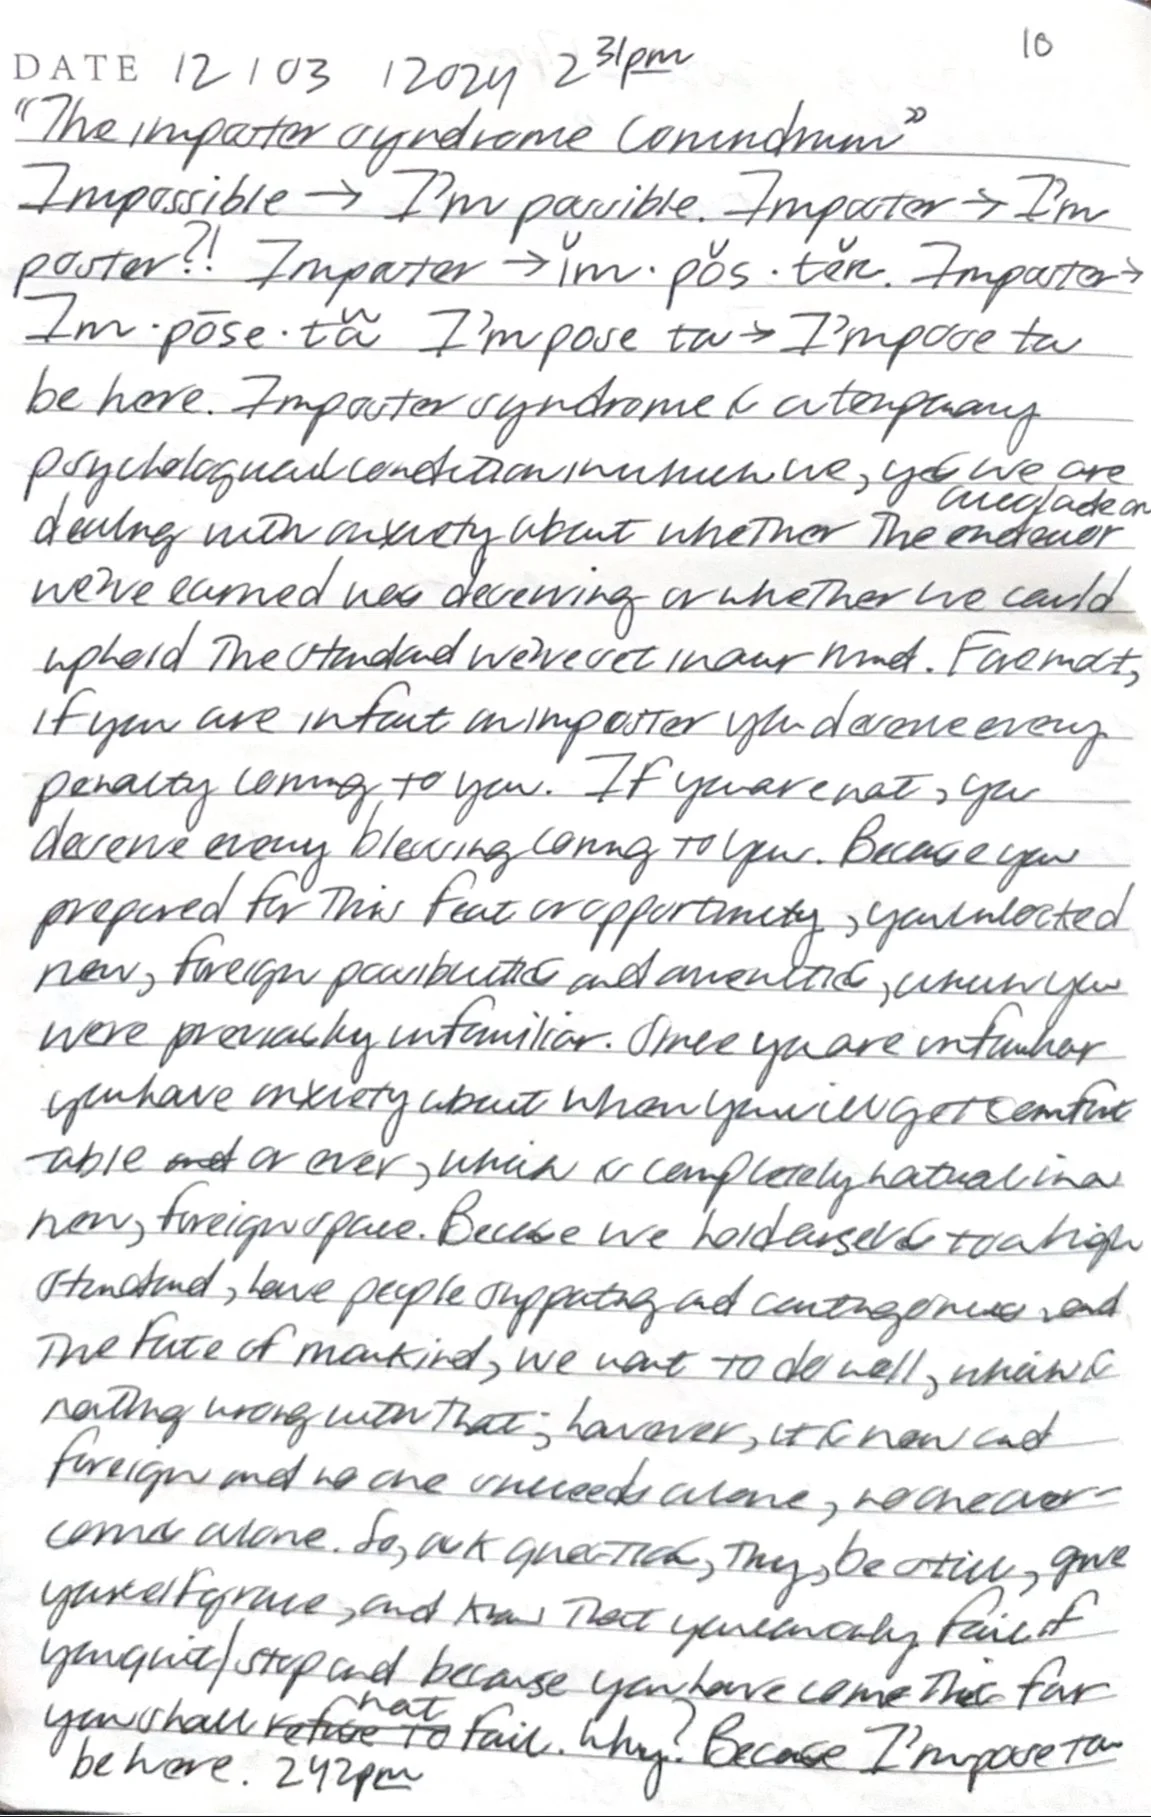 10
DATE 12 / 03 / 2024 2 31pm
"The imposter syndrome Conundrum"
Impossible → I'm possible. Imposter → I'm
poster?! Imposter → ĭm · pŏs · tĕr. Imposter →
Im · pōse · tă I'm pose ta → I'm pose ta
be here. Imposter syndrome is a temporary
psychological condition in which we, yes we are
dealing with anxiety about whether the endeavor
accolade or
we've earned was deserving or whether we could
uphold the standard we've set in our mind. Foremost,
if you are in fact an imposter you deserve every
penalty coming to you. If you are not, you
deserve every blessing coming to you. Because you
prepared for this feat or opportunity, you unlocked
new, foreign possibilities and amenities, which you
were previously unfamiliar. Since you are unfamiliar
you have anxiety about when you will get comfort
-able and or ever, which is completely natural in a
new, foreign space. Because we hold ourselves to a high
standard, have people supporting and
the fate of mankind, we want to do well, which is
nothing wrong with that; however, it is new and
foreign and no one succeeds alone, no one over-
comes alone. So, ask questions, try, be still, give
yourself grace, and know that you can only fail if
you quit/stop and because you have come this far
you shall refuse to fail. Why? Because I'm pose ta
not
be here. 242pm